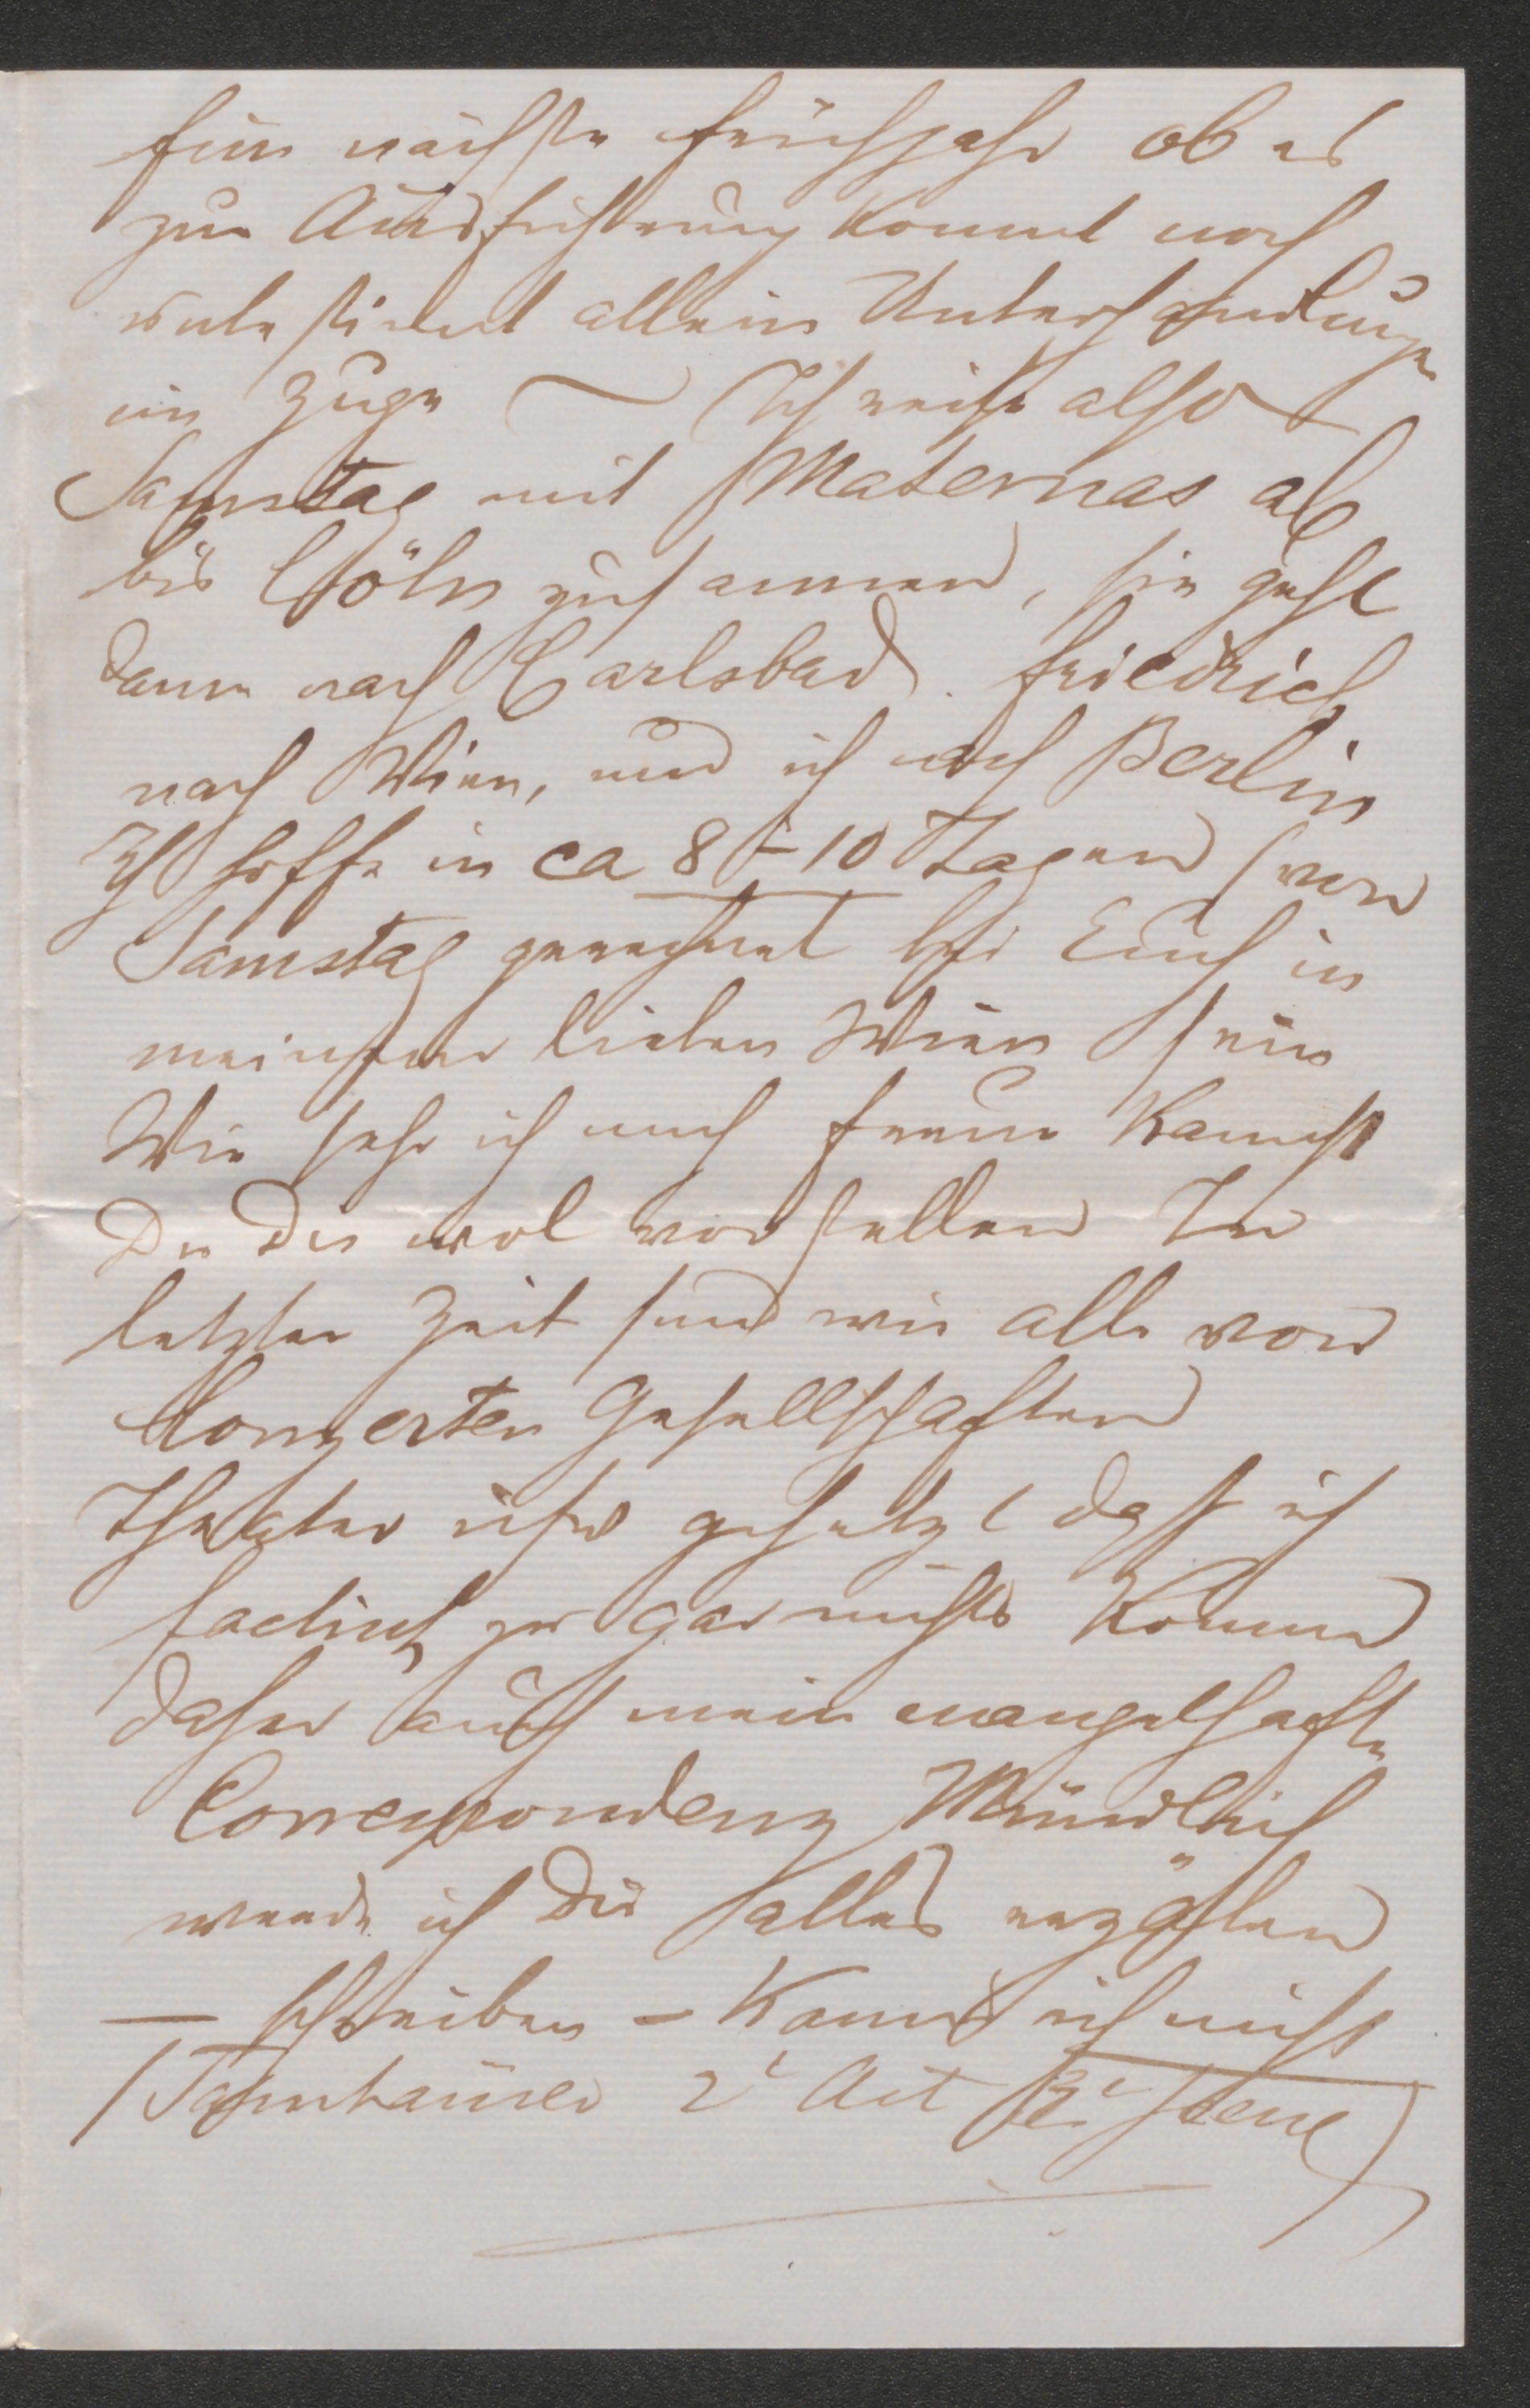 fürs nächste Frühjahr ob es
zur Ausführung kommt noch
unbestimmt allein Unterhandlungen
im Zuge — Ich reise also
Samstag mit Maternas ab
bis Cöln zusammen, sie geht
dann nach Carlsbad. Friedrich
nach Wien, und ich nach Berlin
Ich hoffe in ca 8–10 Tagen von
Samstag gerechnet bei Euch in
meinem lieben Wien sein
Wie sehr ich mich freue kannst
Du Dir wol vorstellen In
letzter Zeit sind wir alle von
Konzerten Gesellschaften
Theater usw gehetzt daß ich
factisch zu gar nichts komme
daher auch meine mangelhafte
Correspondenz Mündlich
werde ich Dir alles erzählen
— schreiben – kann ich nicht
(Tannhäuser 2t Act 2t Scene)